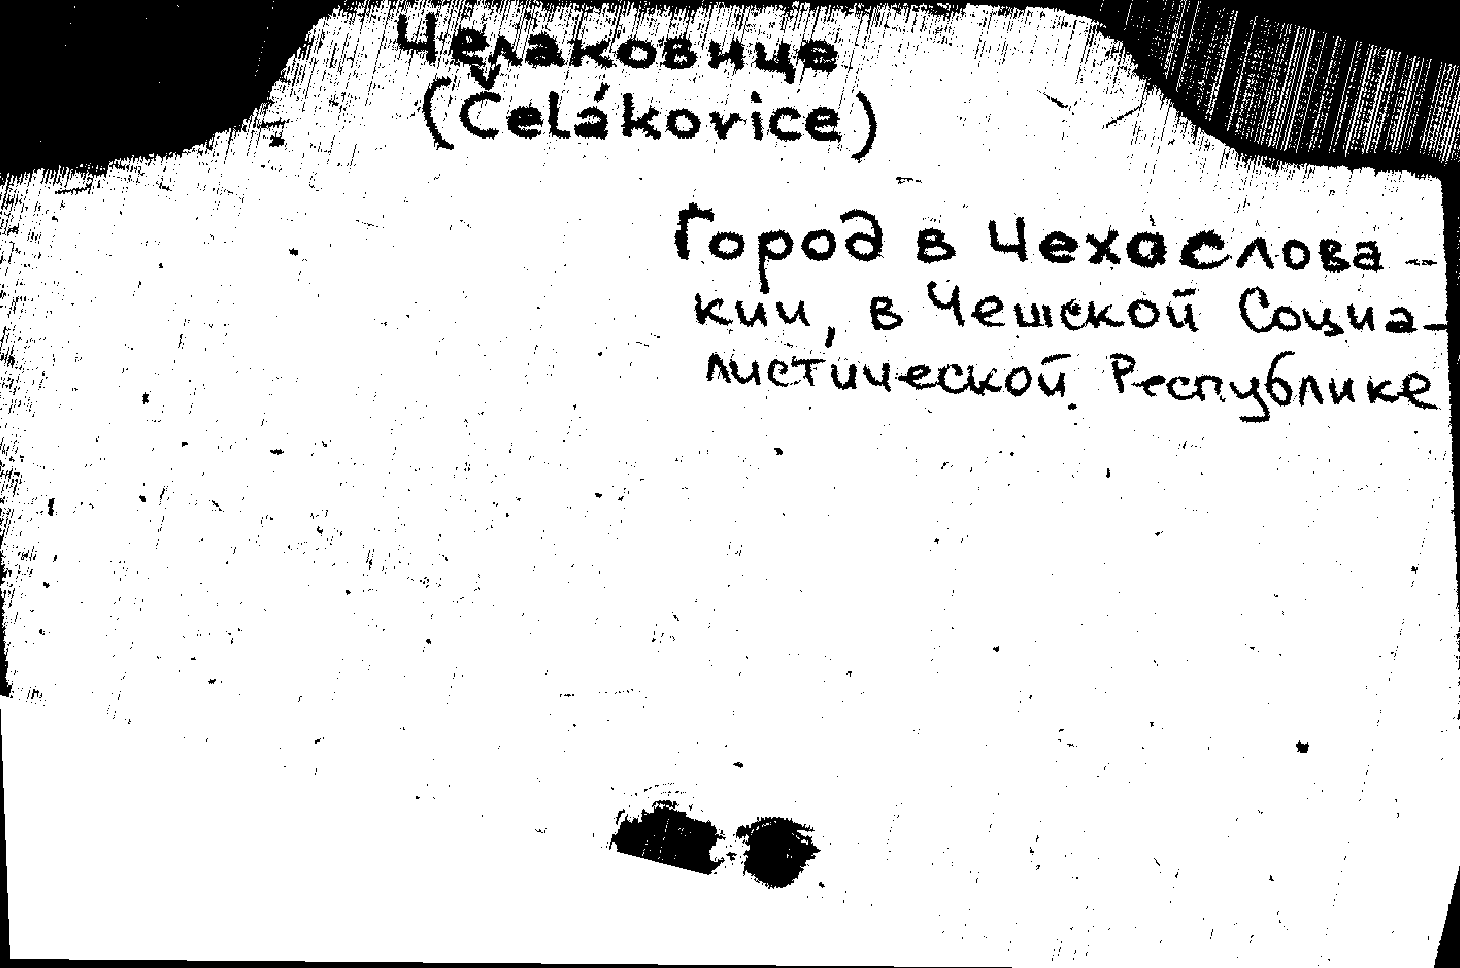 Челаковице
(Čelákovice)
Город в Чехослова-
кии, в Чешской Социа-
листической Республике